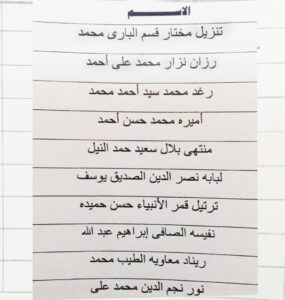 الاســـــم
تنزيل مختار قسم البارى محمد
رزان نزار محمد على أحمد
رغد محمد سيد أحمد محمد
أميره محمد حسن أحمد
منتهى بلال سعيد حمد النيل
لبابه نصر الدين الصديق يوسف
ترتيل قمر الأنبياء حسن حميده
نفيسه الصافى إبراهيم عبد الله
ريناد معاويه الطيب محمد
نور نجم الدين محمد على